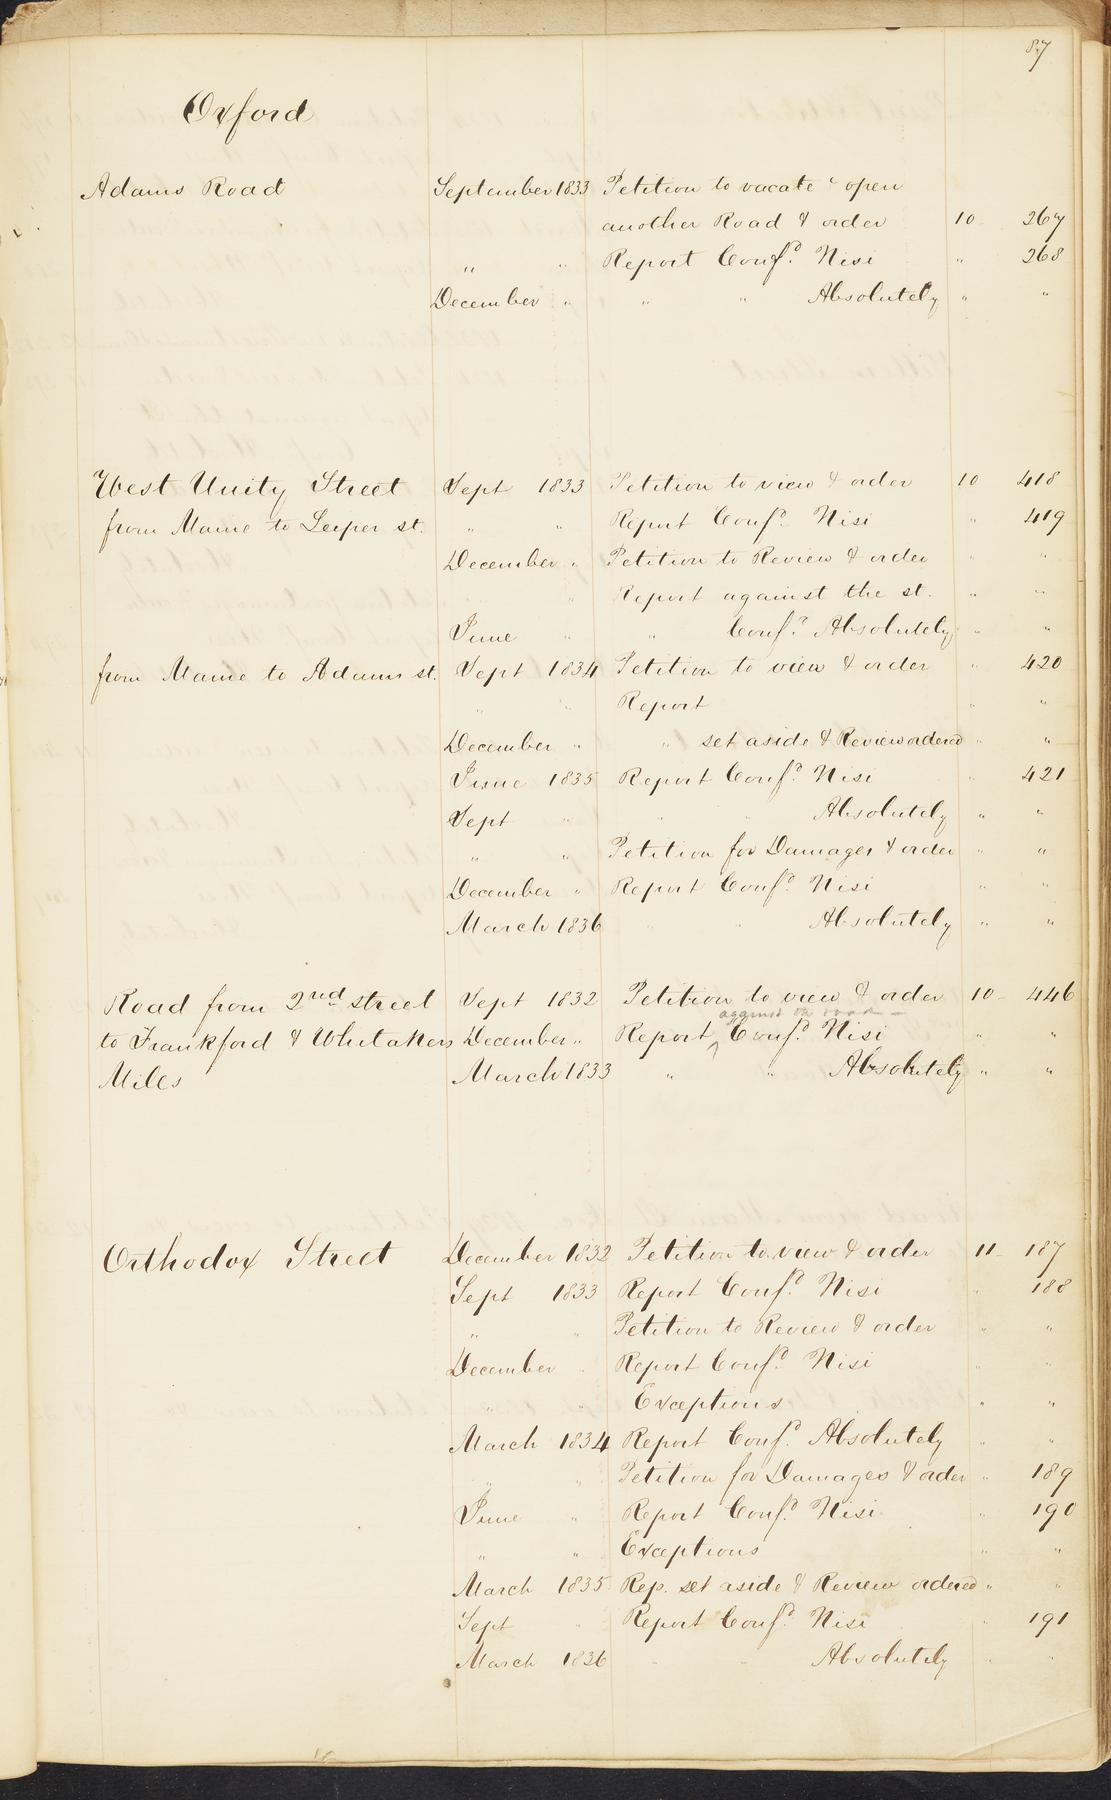 87
Oxford
Adams Road September 1833 Petition to vacate & open
another Road & order 10 267
" " Report Conf.d Nisi " 268
December " " " Absolutely " "
West Unity Street Sept 1833 Petition to view & order 10 418
from Maine to Leiper st. " " Report Conf.d Nisi " 419
December " Petition to Review & order " "
" Report against the st. " "
June " " Conf.d Absolutely " "
from Maine to Adams st. Sept 1834 Petition to view & order " 420
" " Report " "
December " " set aside & Review ordered " "
June 1835 Report Conf.d Nisi " 421
Sept " " " Absolutely " "
" " Petition for Damages & order " "
December " Report Conf.d Nisi " "
March 1836 " " Absolutely " "
Road from 2nd street Sept 1832 Petition to view & order 10 446
against the road
to Frankford & Whitakers December " Report ^ Conf.d Nisi " "
Mills March 1833 " " Absolutely " "
Orthodox Street December 1832 Petition to view & order 11 187
Sept 1833 Report Conf.d Nisi " 188
" " Petition to Review & order " "
December " Report Conf.d Nisi " "
" " Exceptions " "
March 1834 Report Conf.d Absolutely " "
" " Petition for Damages & order " 189
June " Report Conf.d Nisi " 190
" " Exceptions " "
March 1835 Rep. set aside & Review ordered " "
Sept " Report Conf.d Nisi " 191
March 1836 " " Absolutely " "